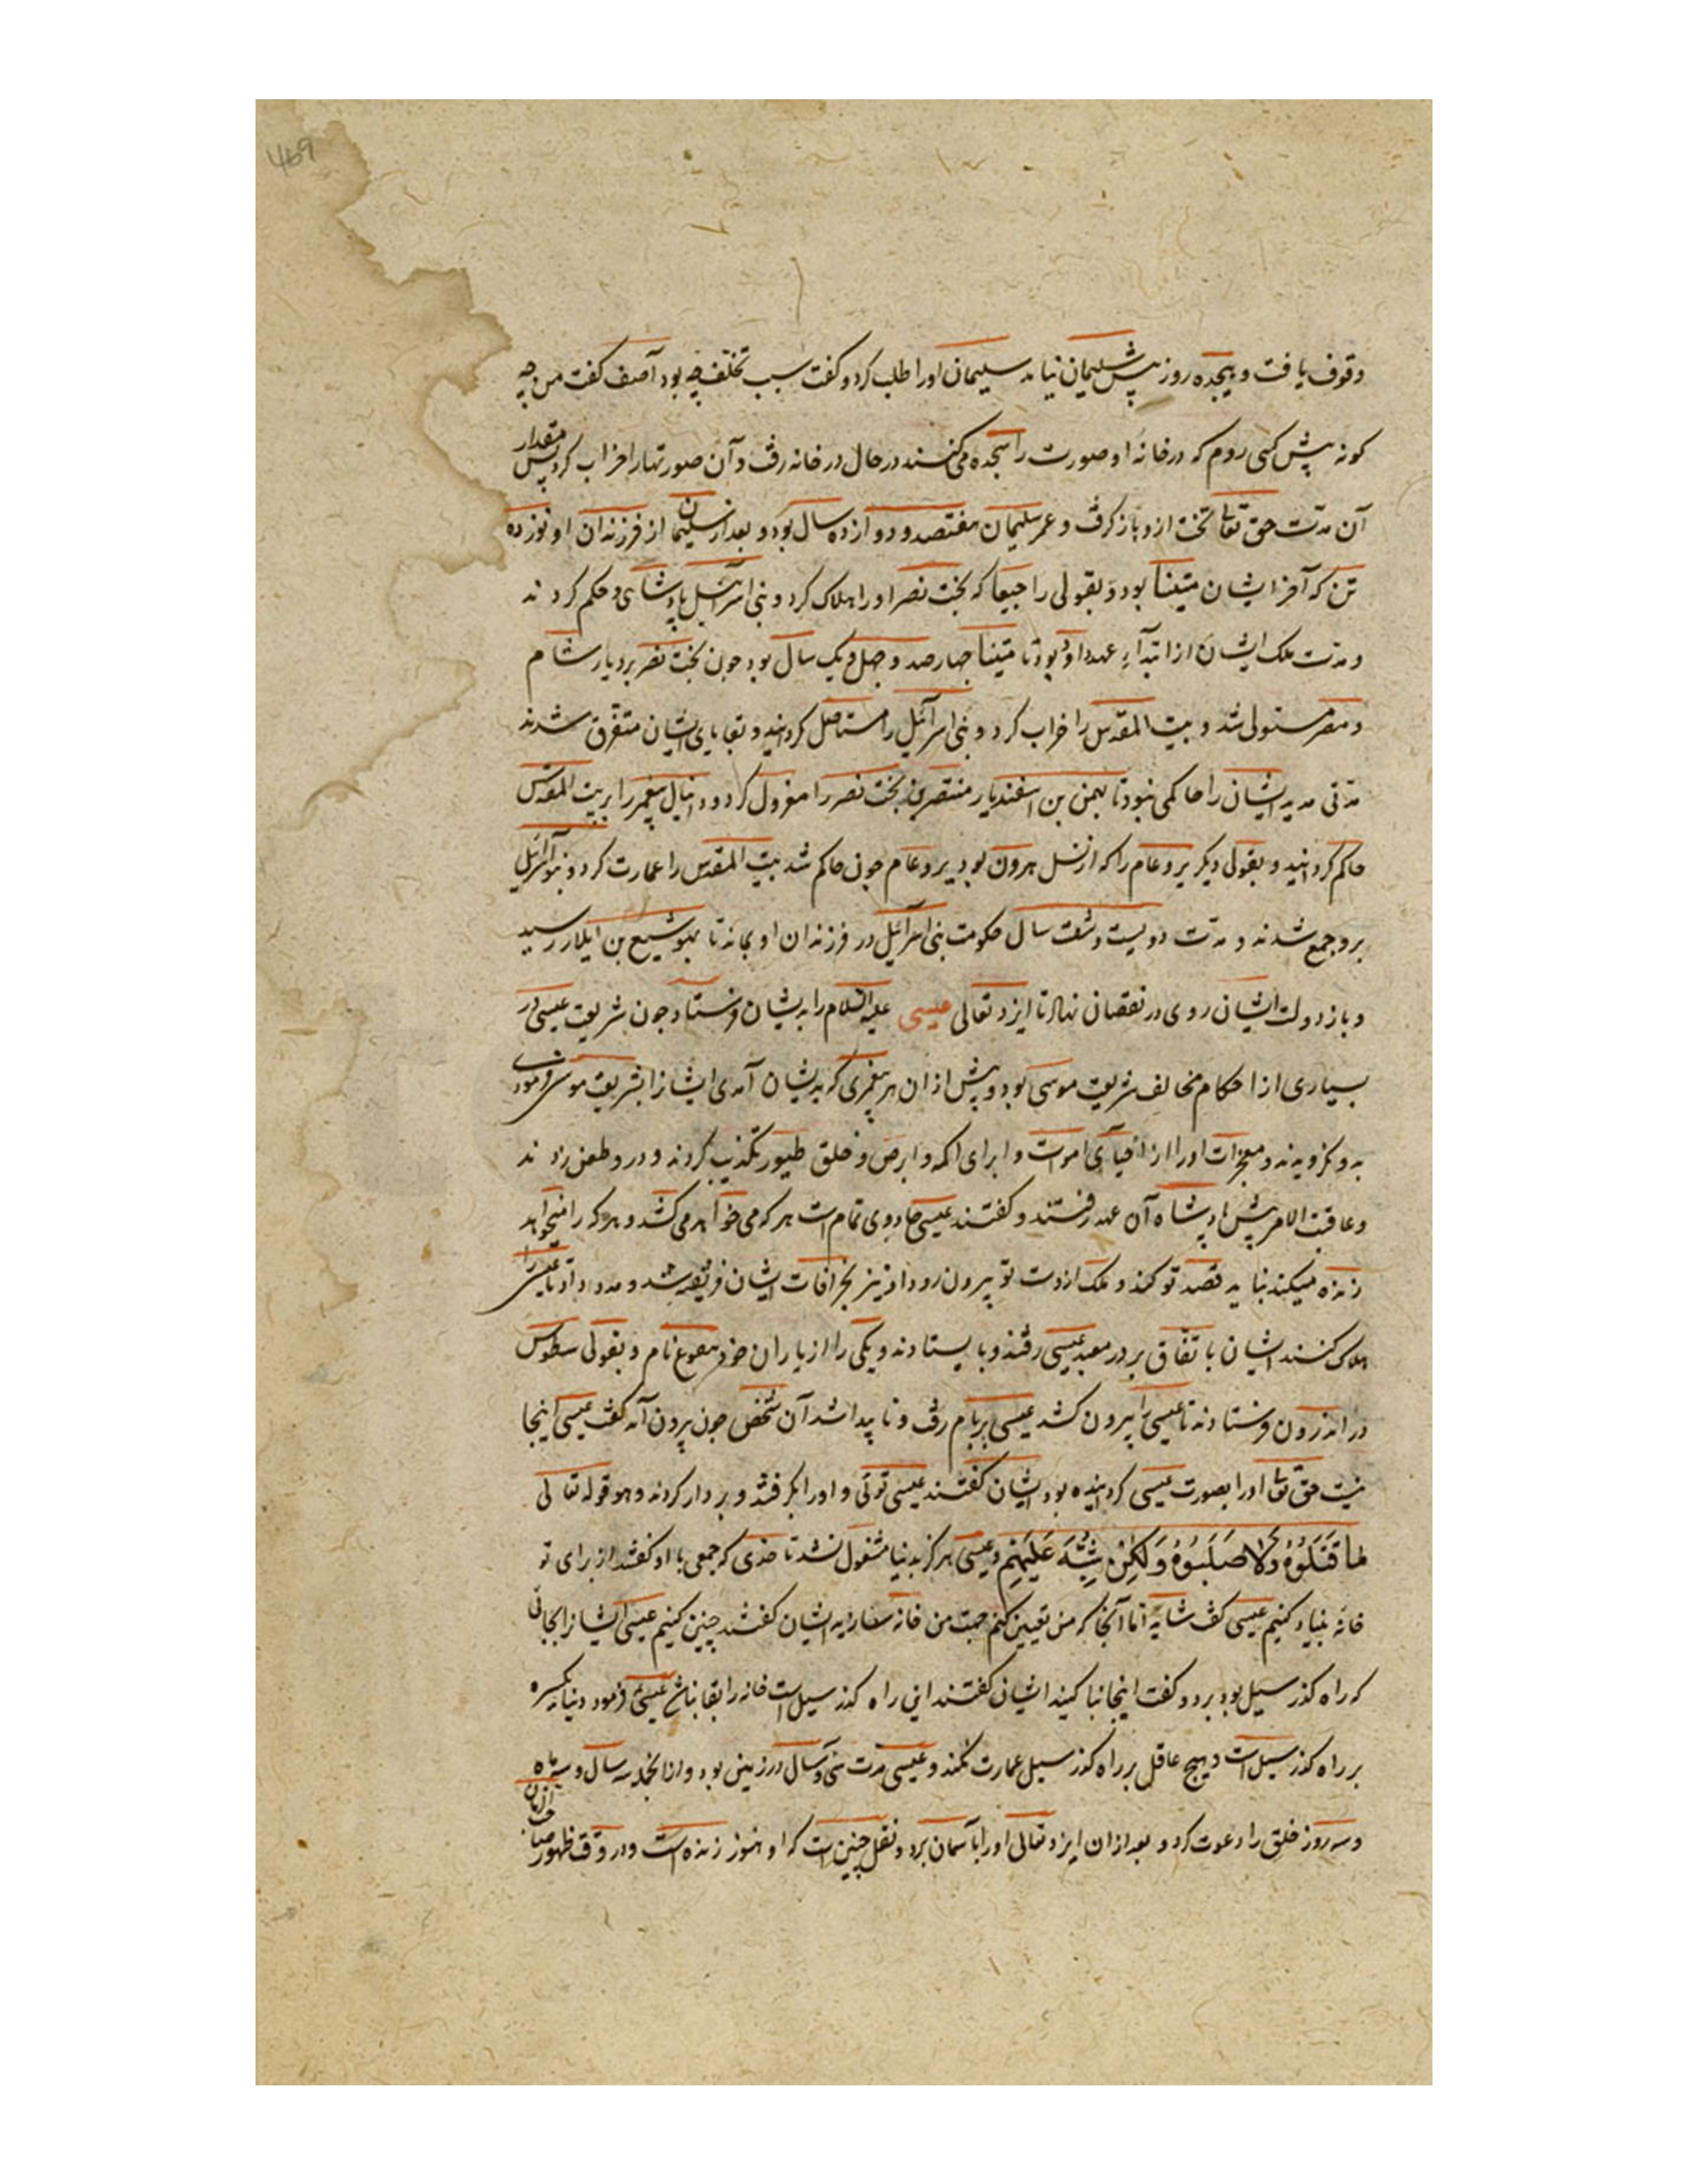 469
وقوف یافت و هیجده روز پیش سلیمان نیامد سلیمان او را طلب کرد و کفت سبب تخلّف چه بود آصف کفت من چه
کونه پیش کسی روم که در خانهٔ او صورت را سجده می کنند در حال در خانه رفت و آن صورتها را خراب کرد پس مقدار
آن مدّت حق تعالی تخت ازو باز کرفت و عمر سلیمان هفتصد و دوازده سال بود و بعد از سلیمان از فرزندان او نوزده
تن که آخر ایشان متینا بود و بقولی راجیعا که بخت نصر او را هلاک کرد و بنی اسرآئیل پادشاهی و حکم کردند
و مدّت ملک ایشان از ابتدآءِ عهد داود تا متینا چهارصد و چهل و یک سال بود چون بخت نصر بر دیار شام
و مصر مستولی شد و بیت المقدس را خراب کرد و بنی اسرآئیل را مستاصل کردانید و بقایای ایشان متفرق شدند
مدتی مدید ایشان را حاکمی نبود تا بهمن بن اسفندیار منتصر بن بخت نصر را معزول کرد و دانیال پیغمبر را بر بیت المقدس
حاکم کردانید و بقولی دیکر یروعام را که از نسل هرون بود یروعام چون حاکم شد بیت المقدس را عمارت کرد و بنو اسرآئیل
برو جمع شدند و مدّت دویست و شصت سال حکومت بنی اسرآئیل در فرزندان او بماند تا بهوشیع بن ایلار رسید
و باز دولت ایشان روی در نقصان نهاد تا ایزد تعالی عیسی علیه السّلام را بدیشان فرستاد چون شریعت عیسی در
بسیاری از احکام مخالف شریعت موسی بود و پیش از ان هر پیغمبری که بدیشان آمدی ایشانرا بشریعت موسی فرمودی
بدو نکرویدند و معجزات او را از احیآی اموات و ابرای اکمه و ابرص و خلق طیور تکذیب کردند و درو طعن زدند
و عاقبت الامر پیش پادشاه آن عهد رفتند و کفتند عیسی جادوی تمام است هر که می خواهد می کشد و هر که را میخواهد
زنده میکند نباید قصد تو کند و ملک از دست تو بیرون رود او نیز بخرافات ایشان فریفته شد و مدد داد تا عیسی را
هلاک کنند ایشان باتفاق بر در معبد عیسی رفتند و بایستادند و یکی را از یاران خود نام و بقولی سطوس
در اندرون فرستادند تا عیسی را بیرون کشد عیسی بر بام رفت و ناپیدا شد آن شخص چون بیرون آمد کفت عیسی اینجا
نیست حق تعالی او را بصورت عیسی کردانیده بود ایشان کفتند عیسی توئی و او را بکرفتند و بر دار کردند و هو قوله تعالی
مَا قَتَلُوْهُ وَلَا صَلَبُوْهُ وَلَكِنْ شُبِّهَ عَلَيْهِمْ و عیسی هرکز بدنیا مشغول نشد تا حدی که جمعی با او کفتند از برای تو
خانهٔ بنیاد کنیم عیسی کفت شاید امّا آنجا که من تعیین کنم جهت من خانه بسازید ایشان کفتند چنین کنیم عیسی ایشانرا بجائی
که راه کذر سیل بود برد و کفت اینجا بنا کنید ایشان کفتند این راه کذر سیل است خانه را بقا نباشد عیسی فرمود دنیا یکسره
بر راه کذر سیل است و هیچ عاقل بر راه کذر سیل عمارت نکند و عیسی مدّت سی و سال در زمین بود و از انجمله سه سال و سه ماه
و سه روز خلق را دعوت کرد و بعد از ان ایزد تعالی او را بآسمان برد و نقل چنین است که او هنوز زنده است و در وقت ظهور صاحب الزمان